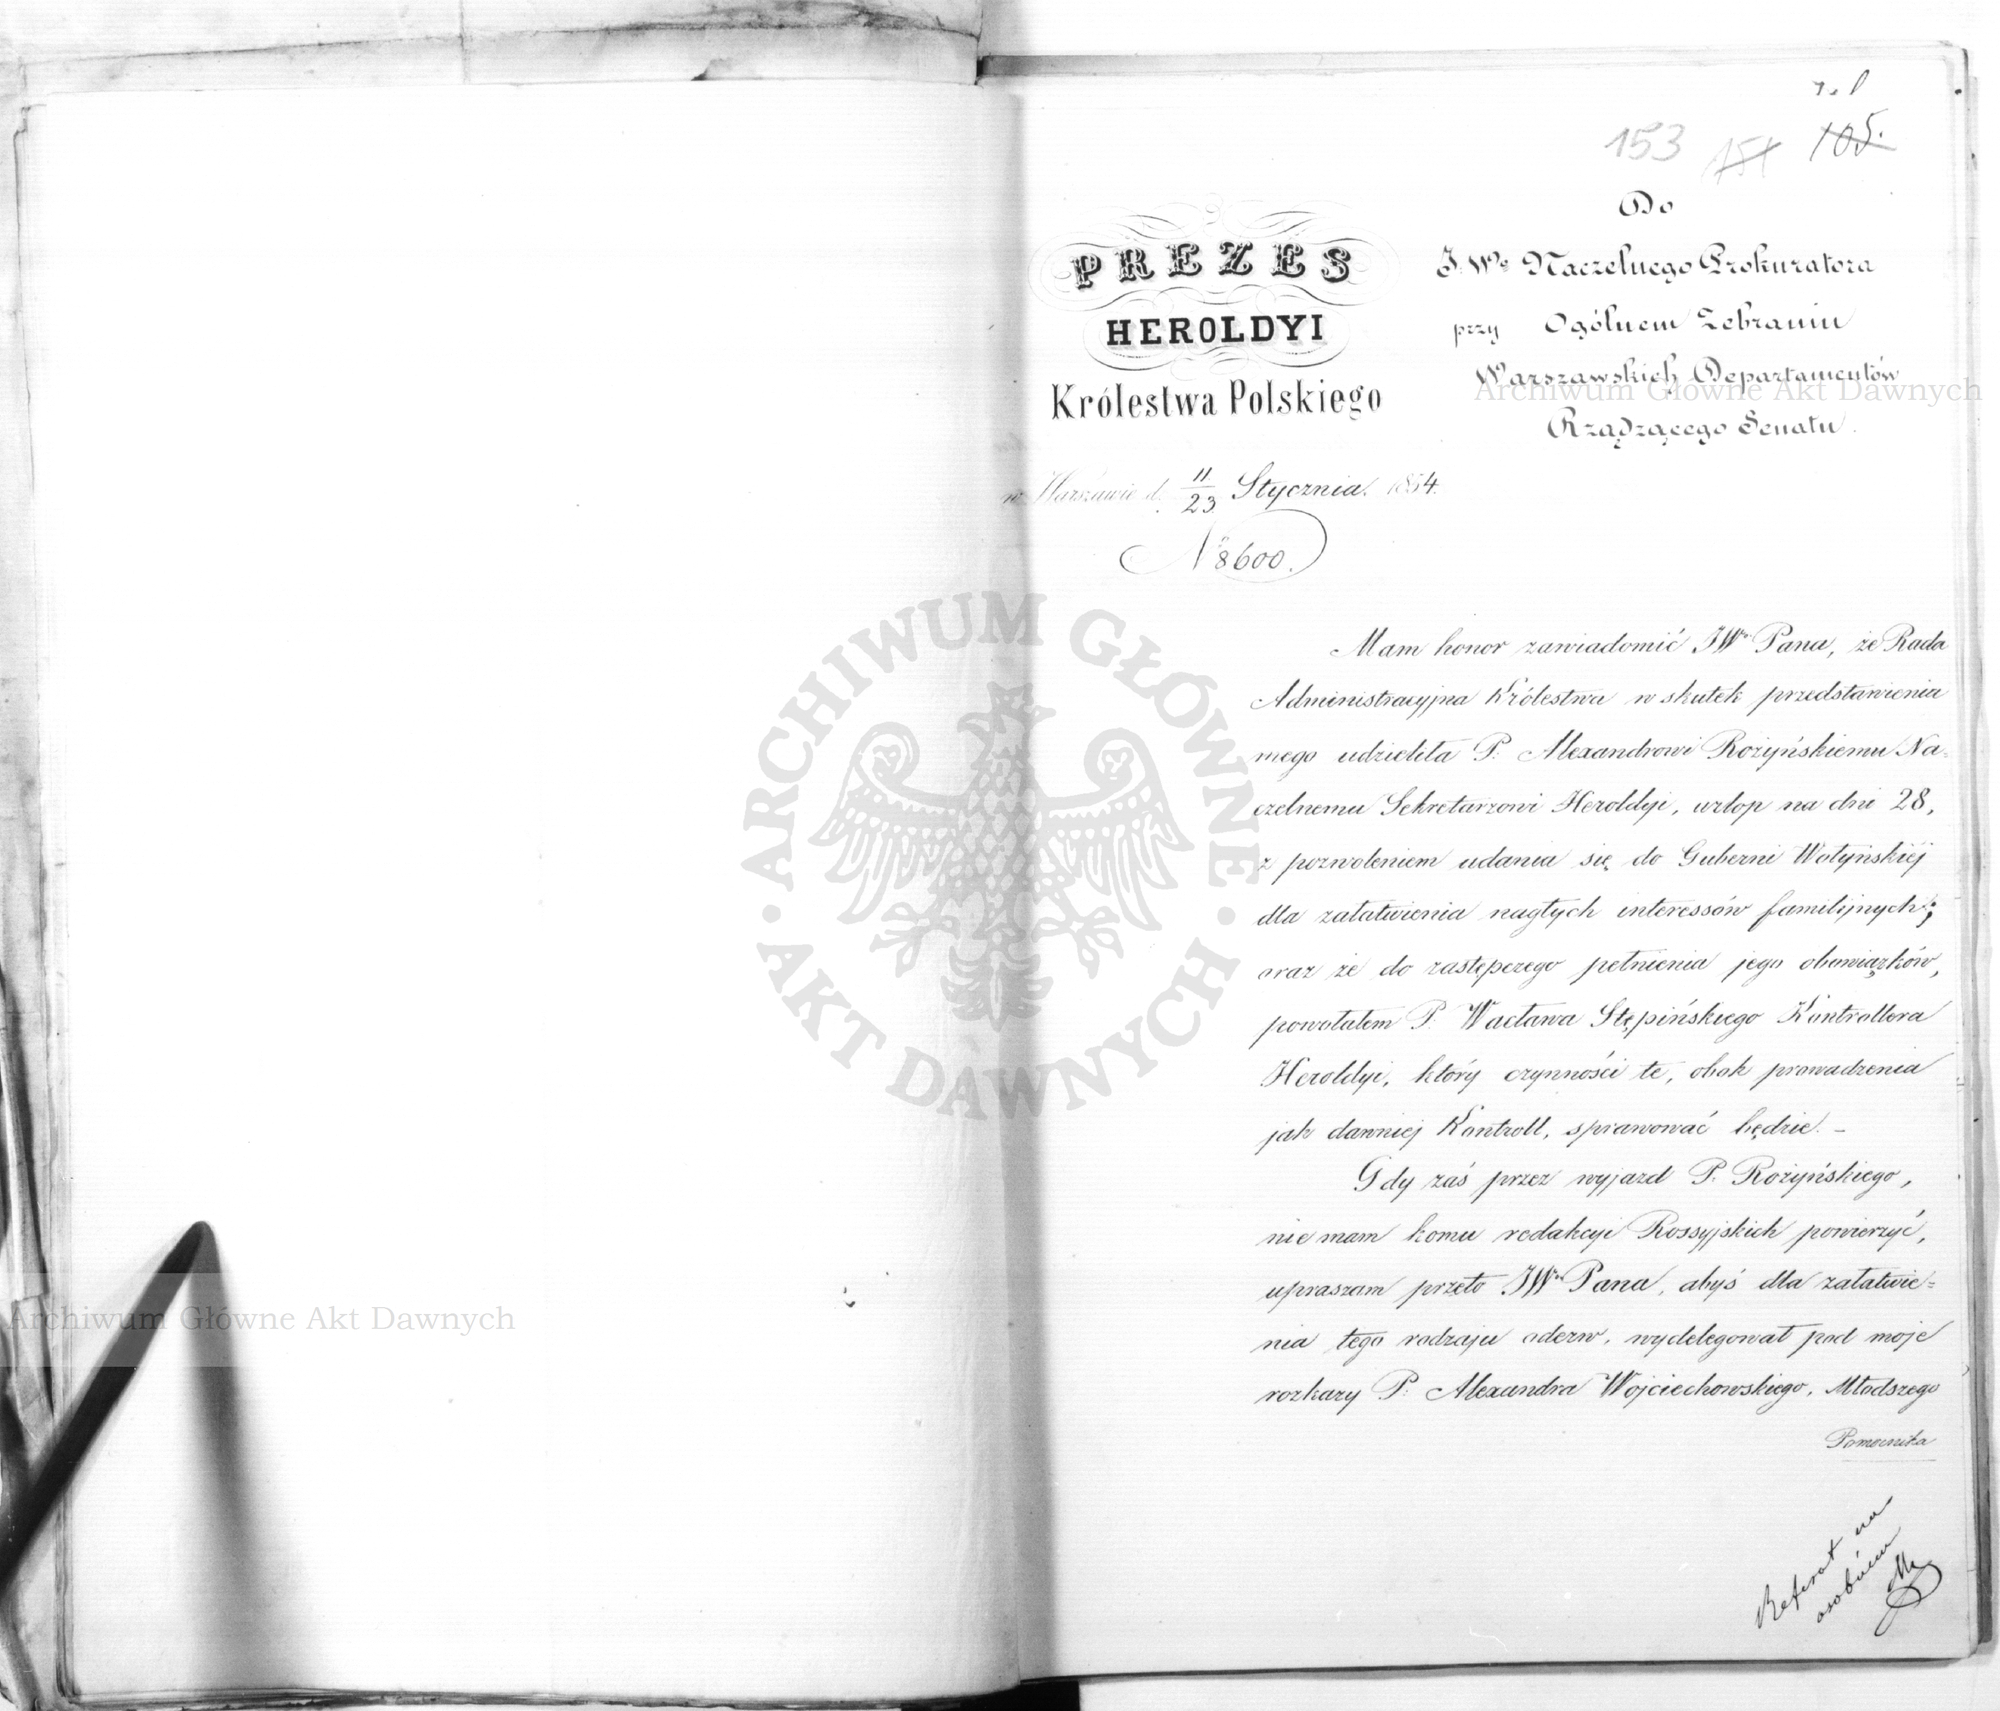 153 151 105.
PREZES
HEROLDYI
Królestwa Polskiego
w Warszawie d. 11/23 Stycznia 1854.
№ 8600.
Do
J.Wo Naczelnego Prokuratora
przy Ogólnem Zebraniu
Warszawskich Departamentów
Rządzącego Senatu.
Mam honor zawiadomić JWo Pana, że Rada
Administracyjna Królestwa w skutek przedstawienia
mego udzieliła P. Alexandrowi Rożyńskiemu Na=
czelnemu Sekretarzowi Heroldyi, urlop na dni 28,
z pozwoleniem udania się do Guberni Wołyńskiéj
dla załatwienia nagłych interessów familijnych;
oraz że do zastępczego pełnienia jego obowiązków,
powołałem P. Wacława Stępińskiego Kontrollera
Heroldyi, który czynności te, obok prowadzenia
jak dawniej Kontroll, sprawować będzie. –
Gdy zaś przez wyjazd P. Rożyńskiego,
nie mam komu redakcyi Rossyjskich powierzyć,
upraszam przeto JWo Pana, abyś dla załatwie=
nia tego rodzaju odezw, wydelegował pod moje
rozkazy P. Alexandra Wojciechowskiego, Młodszego
Pomocnika
Referat na
osobném
Archiwum Główne Akt Dawnych
Archiwum Główne Akt Dawnych
ARCHIWUM GŁÓWNE
AKT DAWNYCH